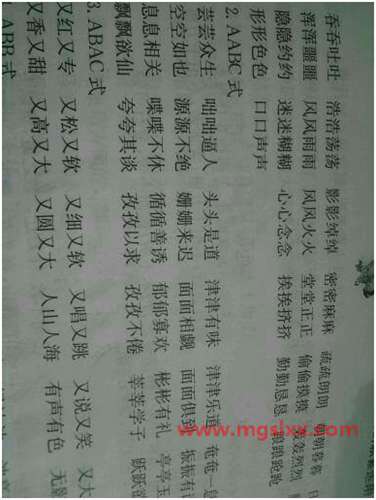 吞吞吐吐 浩浩荡荡 影影绰绰 密密麻麻 疏疏朗朗
浑浑噩噩 风风雨雨 风风火火 堂堂正正 偷偷摸摸 朝暮暮
隐隐约约 迷迷糊糊 心心念念 挨挨挤挤 勤勤恳恳 轰轰烈烈
形形色色 口口声声
2. AABC式
芸芸众生 咄咄逼人 头头是道 津津有味 津津乐道 奄奄一
空空如也 源源不绝 姗姗来迟 面面相觑 面面俱到 振振有
息息相关 喋喋不休 循循善诱 郁郁寡欢 彬彬有礼 亭亭玉
飘飘欲仙 夸夸其谈 孜孜以求 孜孜不倦 莘莘学子 跃跃欲
3. ABAC式
又红又专 又松又软 又细又软 又唱又跳 又说又笑 又大
又香又甜 又高又大 又圆又大 人山人海 有声有色 无影
ABB式
www.mgslxx.com